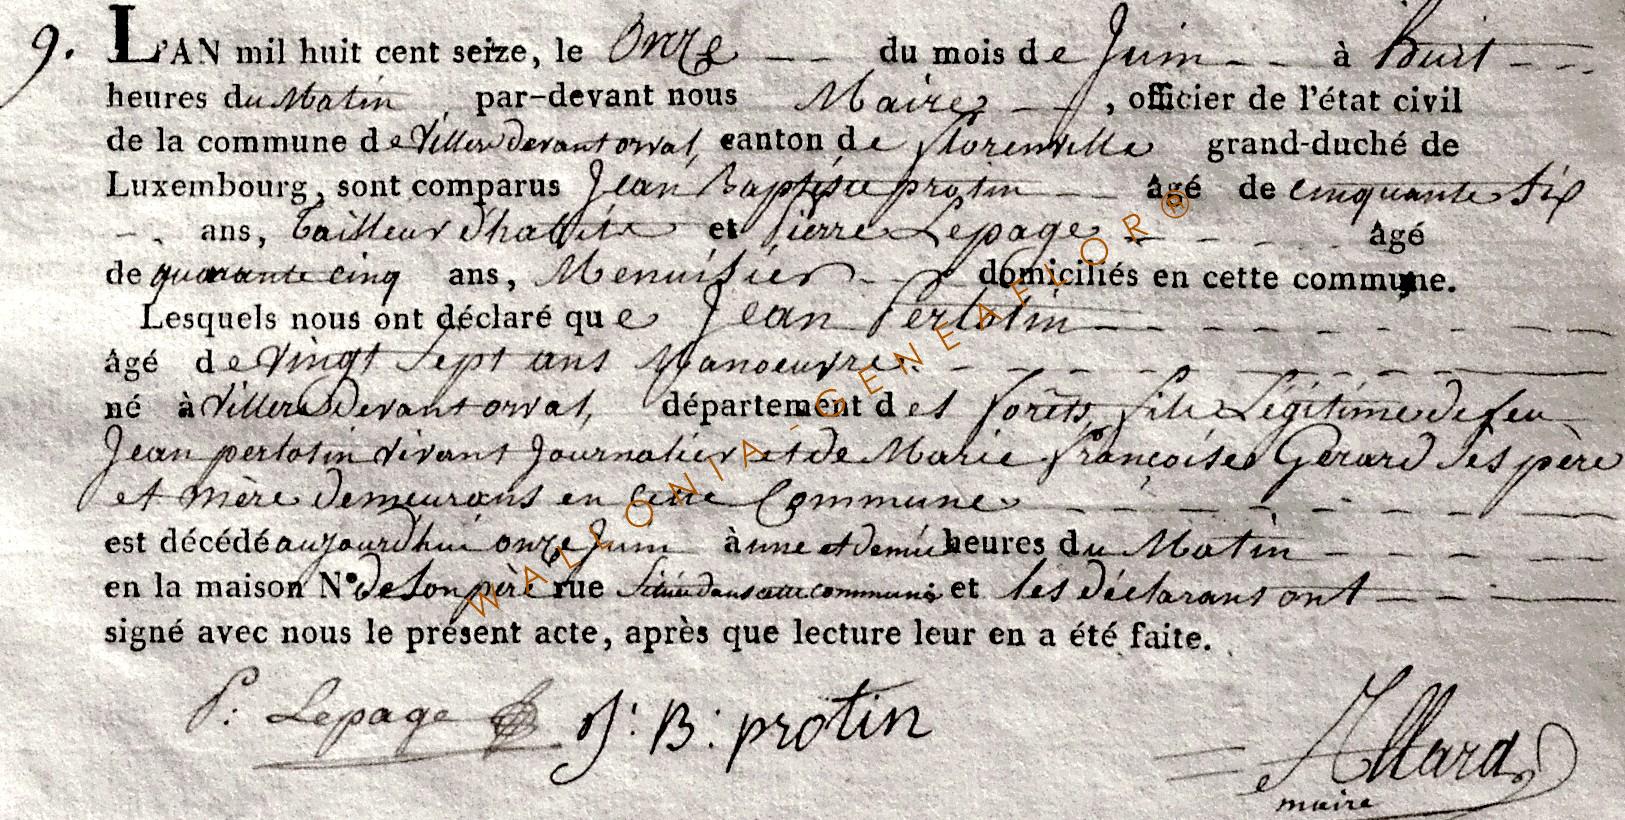 9. L'AN mil huit cent seize, le Onze -- du mois de Juin -- à huit ---
heures du Matin, par-devant nous Maire —, officier de l'état civil
de la commune de Villers devant orval, canton de florenville grand-duché de
Luxembourg, sont comparus Jean Baptiste protin — âgé de cinquante Six
-- ans, tailleur d'habits et Pierre Lepage --- âgé
de quarante cinq ans, Menuisier --- domiciliés en cette commune.
Lesquels nous ont déclaré que Jean Perlotin ---
âgé de vingt Sept ans Manoeuvre. ---
né à Villers Devant orval, département des forêts, fils Légitime de feu
Jean perlotin vivant Journalier et de Marie françoise Gerard Ses père
et mère demeurans en cette Commune ---
est décédé aujourd'hui onze Juin à une et demie heures du Matin ---
en la maison N° de Son père rue Située dans cette commune et les déclarans ont ---
signé avec nous le présent acte, après que lecture leur en a été faite.
P: Lepage J: B: protin Allard
maire
WALLONIA - GENEAFLOR ®